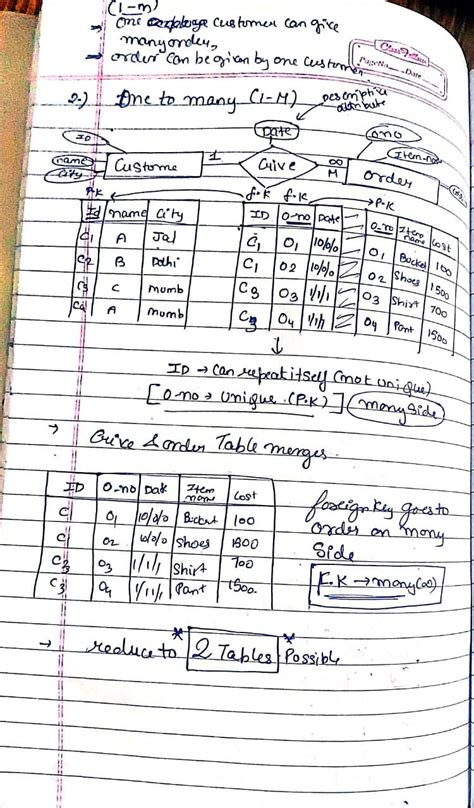 (1-m)
→ One customer can give
many order,
→ order can be given by one customer.
Classmate
Page No. Date
2.) One to many (1-M)
Descriptive
attribute
Date
ID
name
City
Custome
1
Give
∞
M
order
ono
Item-nam
Cost
P.K
f.K f.K
→P.K
Id name City
C1 A Jal
C2 B Delhi
C3 C mumb
C4 A mumb
ID O-no Date
C1 O1 10/0/0
C1 O2 10/0/0
C3 O3 1/1/1
C3 O4 1/1/1
O-no Item name Cost
O1 Bucket 100
O2 Shoes 1500
O3 Shirt 700
O4 Pant 1500
↓
ID → Can repeat itself (not unique)
[O-no → Unique (P.K)] (many side)
→ Give & order Table merges.
ID O-no Dat Item nam Cost
C O1 10/0/0 Bucket 100
C O2 10/0/0 Shoes 1500
C3 O3 1/1/1 Shirt 700
C3 O4 1/1/1 Pant 1500.
foreign key goes to
order on many
side
F.K → many(∞)
→ reduce to * 2 Tables * Possible